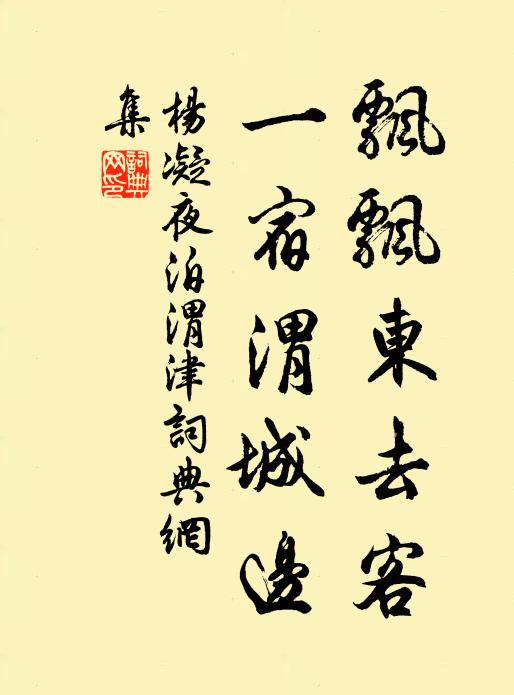 飄飄東去客
一宿渭城邊
楊凝夜泊渭津詞典網
集
詞典
网印